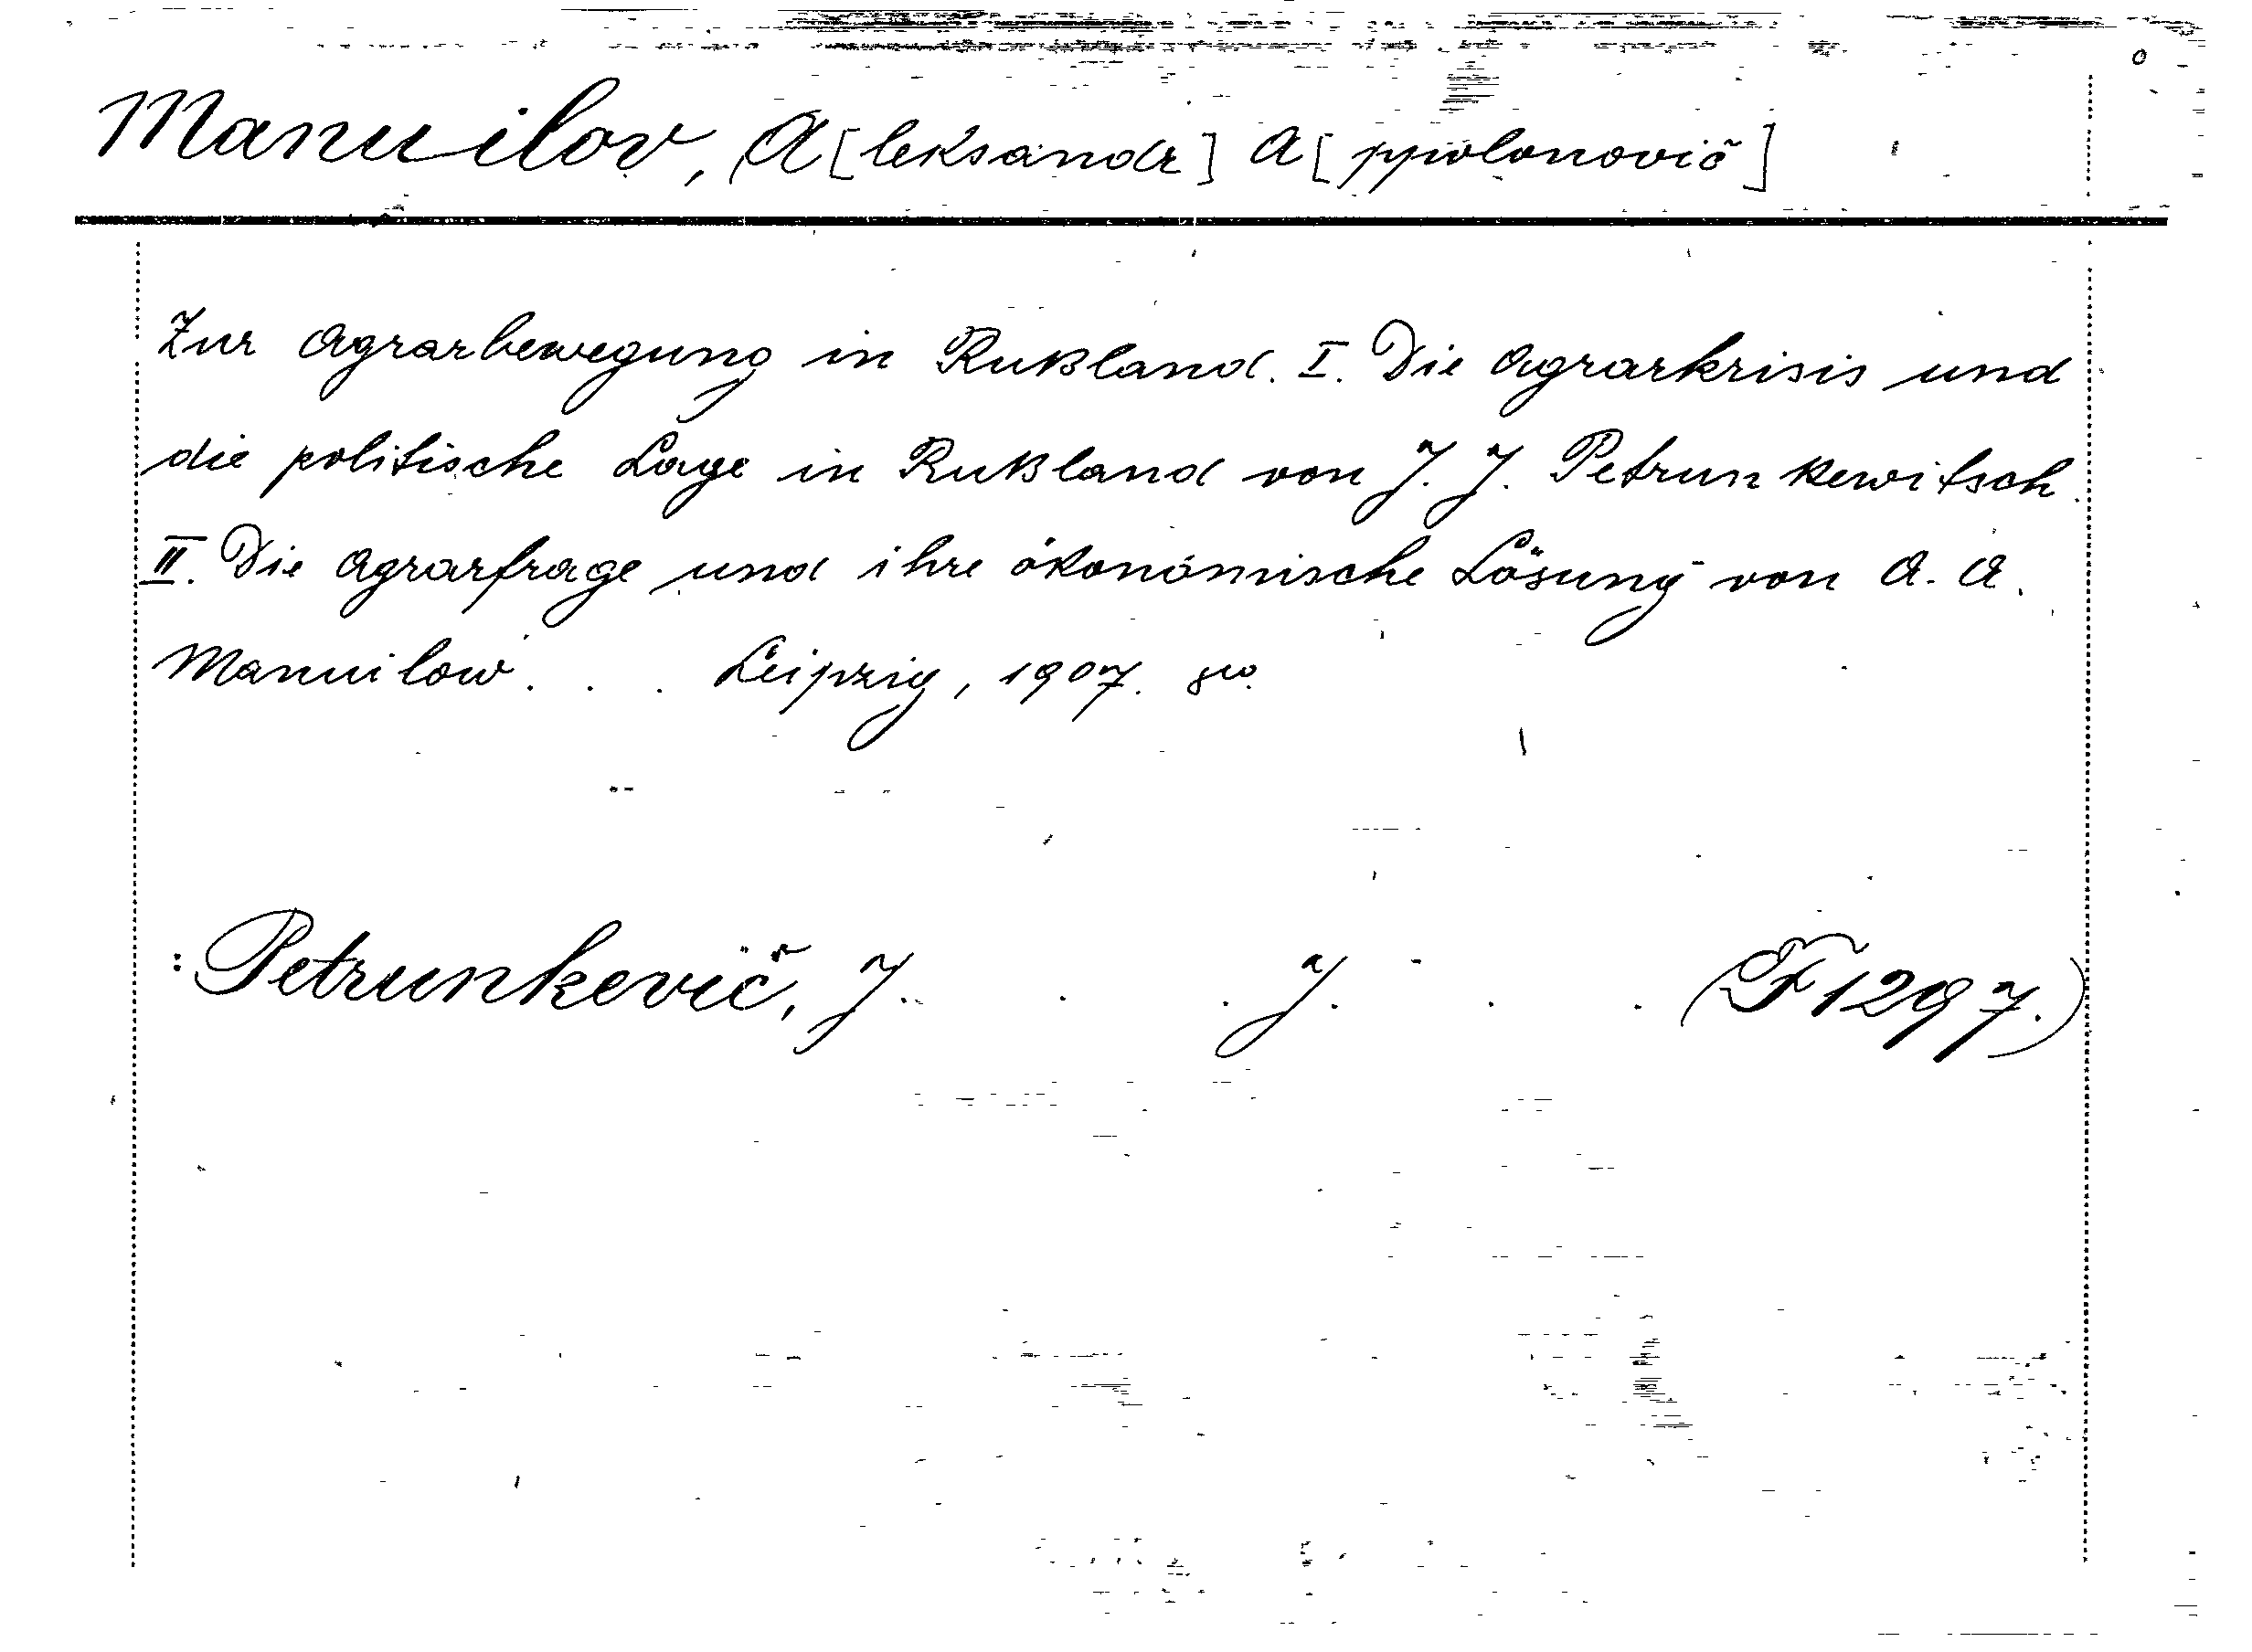 Manuilov, A[leksandr] A[ppolonovič]
Zur Agrarbewegung in Rußland. I. Die Agrarkrisis und
die politische Lage in Rußland von J. J. Petrunkewitsch.
II. Die Agrarfrage und ihre ökonomische Lösung von A. A.
Manuilow . . . Leipzig, 1907. 8vo.
: Petrunkevič, J. . . J. . . (F 1297.)